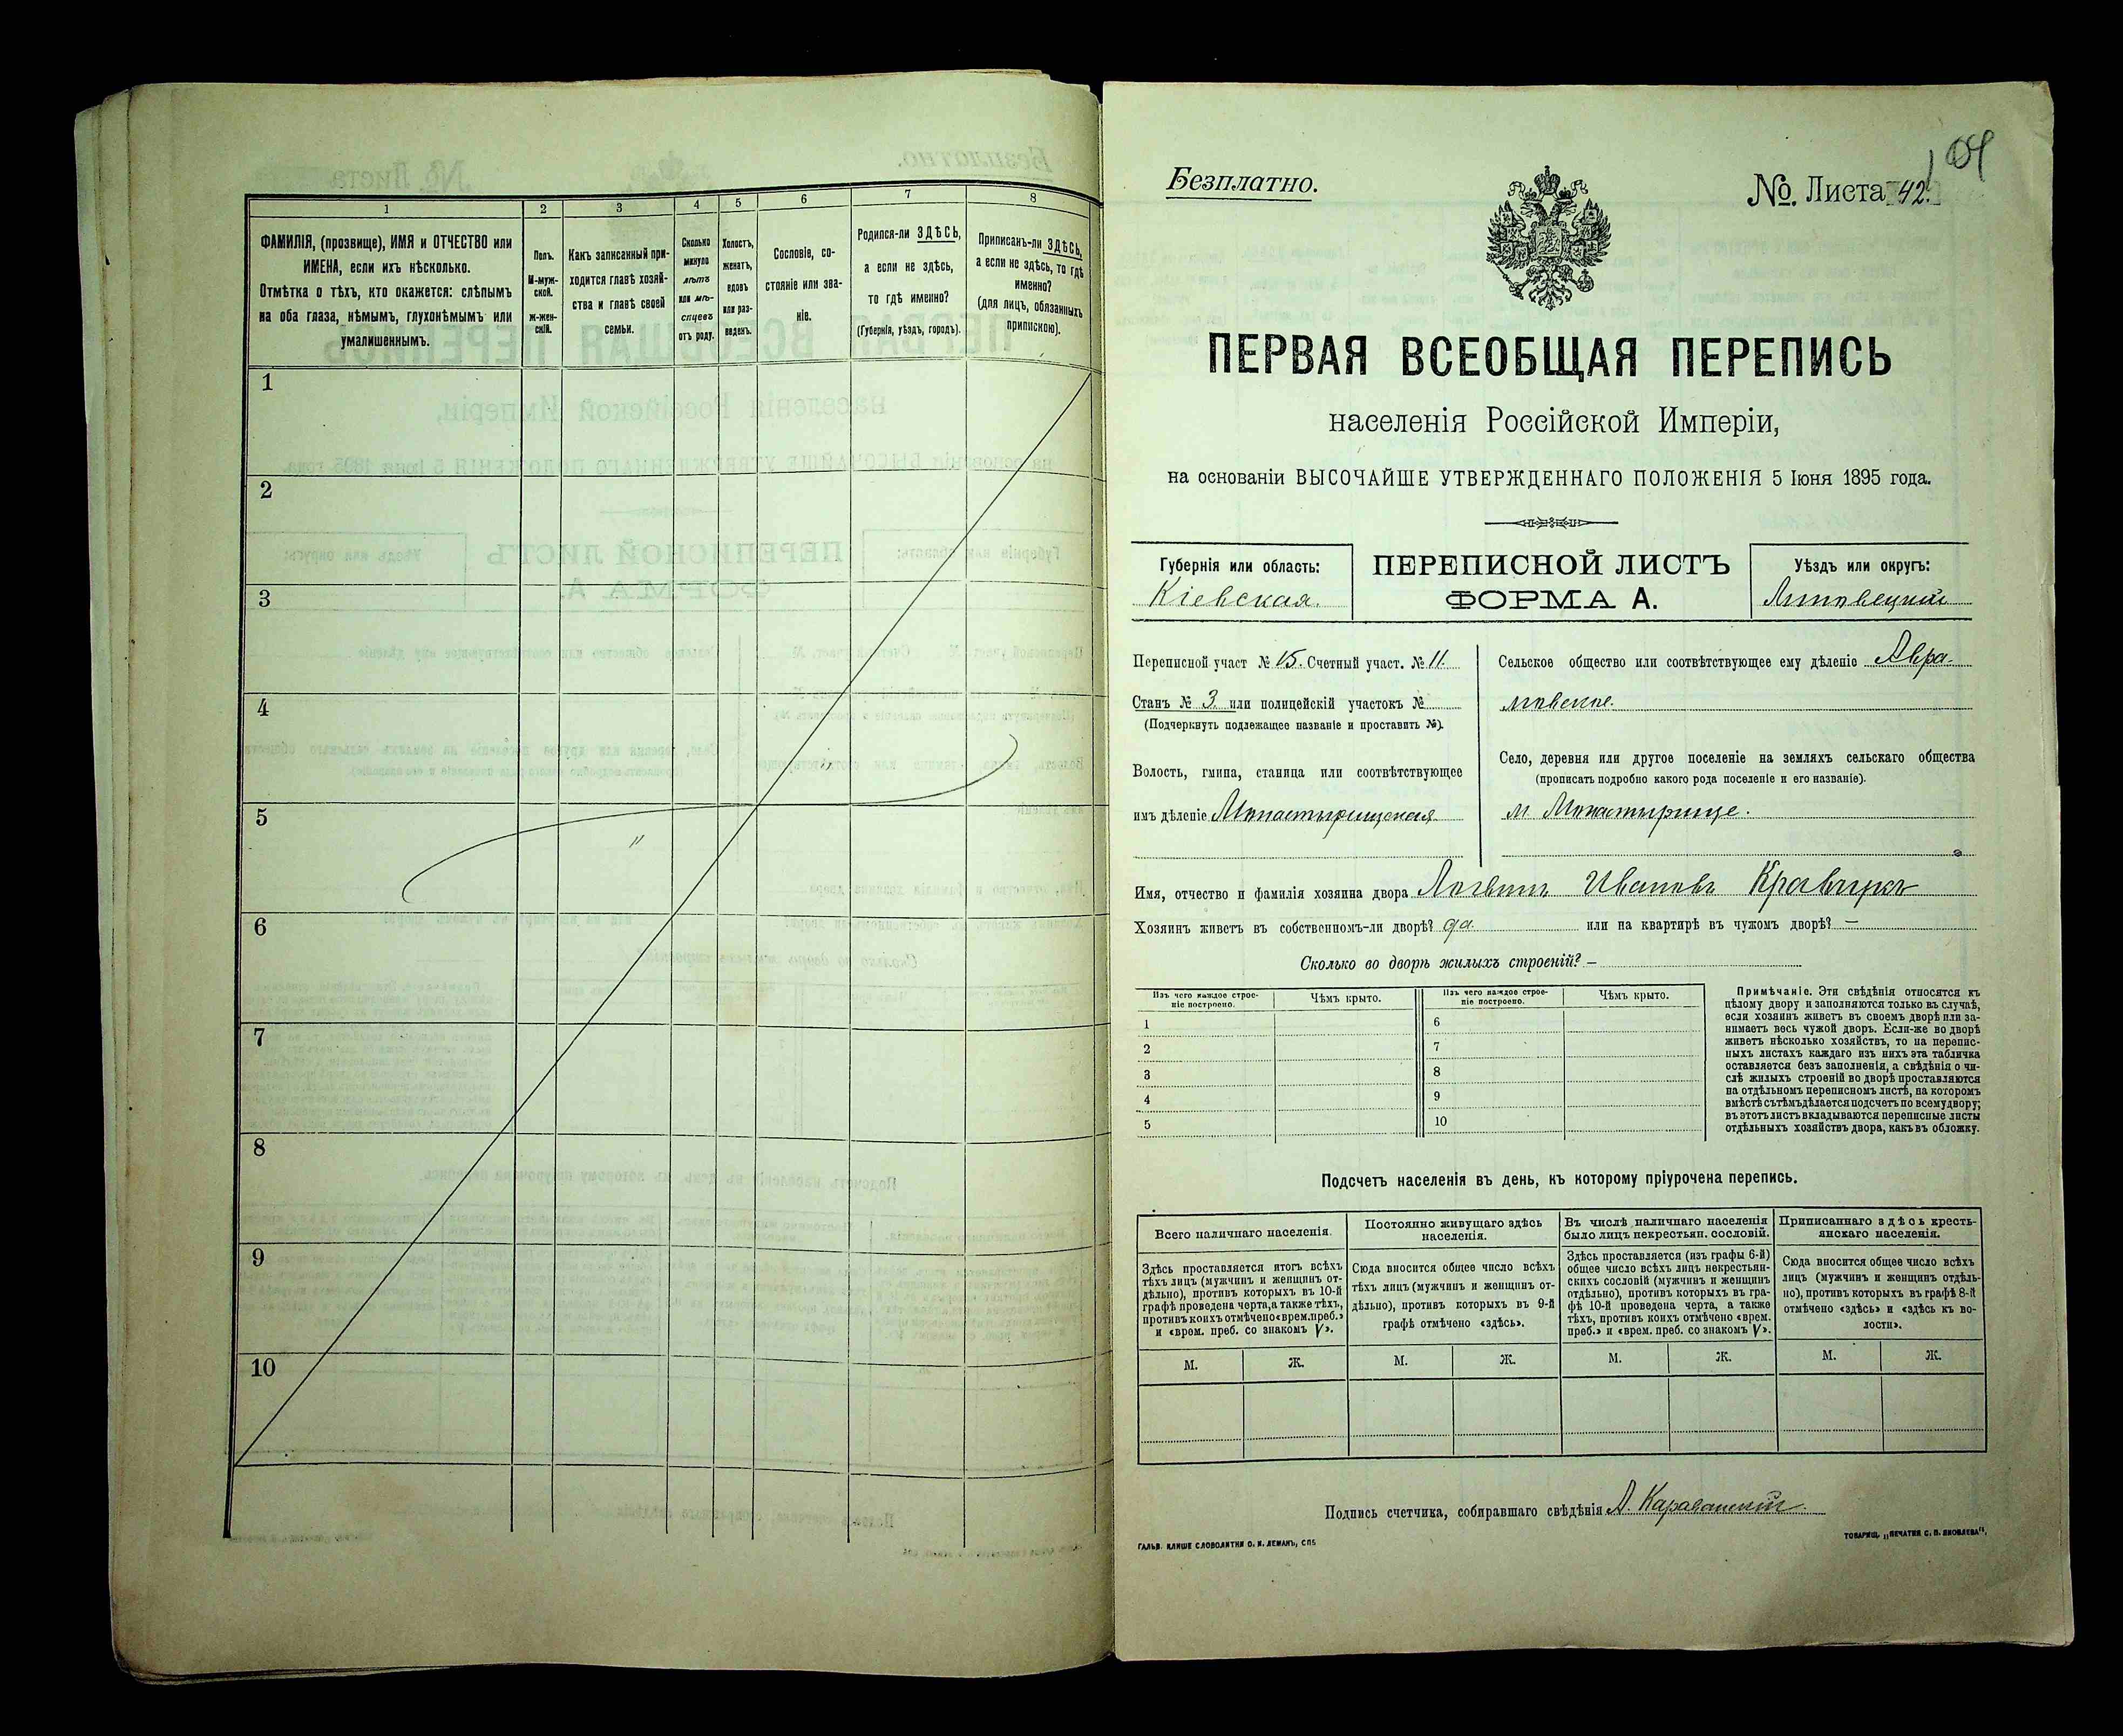 1
2
3
4
5
6
7
8
ФАМИЛІЯ, (прозвище), ИМЯ и ОТЧЕСТВО или
ИМЕНА, если ихъ нѣсколько.
Отмѣтка о тѣхъ, кто окажется: слѣпымъ
на оба глаза, нѣмымъ, глухонѣмымъ или
умалишеннымъ.
Полъ.
М-муж-
ской.
Ж-жен-
скій.
Какъ записанный при-
ходится главѣ хозяй-
ства и главѣ своей
семьи.
Сколько
минуло
лѣтъ
или мѣ-
сяцевъ
отъ роду.
Холостъ,
женатъ,
вдовъ
или раз-
веденъ.
Сословіе, со-
стояніе или зва-
ніе.
Родился-ли ЗДѢСЬ,
а если не здѣсь,
то гдѣ именно?
(Губернія, уѣздъ, городъ).
Приписанъ-ли ЗДѢСЬ,
а если не здѣсь, то гдѣ
именно?
(для лицъ, обязанныхъ
припискою).
1
2
3
4
5
6
7
8
9
10
Безплатно.
№. Листа 42.
ПЕРВАЯ ВСЕОБЩАЯ ПЕРЕПИСЬ
населенія Россійской Имперіи,
на основаніи ВЫСОЧАЙШЕ УТВЕРЖДЕННАГО ПОЛОЖЕНІЯ 5 Іюня 1895 года.
Губернія или область:
Кіевская.
ПЕРЕПИСНОЙ ЛИСТЪ
ФОРМА А.
Уѣздъ или округъ:
Липовецкій
Переписной участ № 15. Счетный участ. № 11.
Станъ № 3. или полицейскій участокъ №
(Подчеркнуть подлежащее названіе и проставить №).
Волость, гмина, станица или соотвѣтствующее
имъ дѣленіе Монастырищская
Сельское общество или соотвѣтствующее ему дѣленіе Авра-
мовское.
Село, деревня или другое поселеніе на земляхъ сельскаго общества
(прописать подробно какого рода поселеніе и его названіе).
м. Монастырище.
Имя, отчество и фамилія хозяина двора Логвинъ Ивановъ Кравчукъ
Хозяинъ живетъ въ собственномъ-ли дворѣ? да. или на квартирѣ въ чужомъ дворѣ? —
Сколько во дворѣ жилыхъ строеній? –
Изъ чего каждое строе-
ніе построено.
Чѣмъ крыто.
Изъ чего каждое строе-
ніе построено.
Чѣмъ крыто.
1
2
3
4
5
6
7
8
9
10
Примѣчаніе. Эти свѣдѣнія относятся къ
цѣлому двору и заполняются только въ случаѣ,
если хозяинъ живетъ въ своемъ дворѣ или за-
нимаетъ весь чужой дворъ. Если-же во дворѣ
живетъ нѣсколько хозяйствъ, то на перепис-
ныхъ листахъ каждаго изъ нихъ эта табличка
оставляется безъ заполненія, а свѣдѣнія о чи-
слѣ жилыхъ строеній во дворѣ проставляются
на отдѣльномъ переписномъ листѣ, на которомъ
вмѣстѣ съ тѣмъ дѣлается подсчетъ по всему двору;
въ этотъ листъ вкладываются переписные листы
отдѣльныхъ хозяйствъ двора, какъ въ обложку.
Подсчетъ населенія въ день, къ которому пріурочена перепись.
Всего наличнаго населенія.
Постоянно живущаго здѣсь
населенія.
Въ числѣ наличнаго населенія
было лицъ некрестьян. сословій.
Приписаннаго здѣсь кресть-
янскаго населенія.
Здѣсь проставляется итогъ всѣхъ
тѣхъ лицъ (мужчинъ и женщинъ от-
дѣльно), противъ которыхъ въ 10-й
графѣ проведена черта, а также тѣхъ,
противъ коихъ отмѣчено «врем. преб.»
и «врем. преб. со знакомъ V».
Сюда вносится общее число всѣхъ
тѣхъ лицъ (мужчинъ и женщинъ от-
дѣльно), противъ которыхъ въ 9-й
графѣ отмѣчено «здѣсь».
Здѣсь проставляется (изъ графы 6-й)
общее число всѣхъ лицъ некрестьян-
скихъ сословій (мужчинъ и женщинъ
отдѣльно), противъ которыхъ въ гра-
фѣ 10-й проведена черта, а также
тѣхъ, противъ коихъ отмѣчено «врем.
преб.» и «врем. преб. со знакомъ V».
Сюда вносится общее число всѣхъ
лицъ (мужчинъ и женщинъ отдѣль-
но), противъ которыхъ въ графѣ 8-й
отмѣчено «здѣсь» и «здѣсь къ во-
лости».
М. Ж. М. Ж. М. Ж. М. Ж.
Подпись счетчика, собиравшаго свѣдѣнія А.
ГАЛЬВ. КЛИШЕ СЛОВОЛИТНИ О. И. ЛЕМАНЪ, СПБ
ТОВАРИЩ. „ПЕЧАТНЯ С. П. ЯКОВЛЕВА".